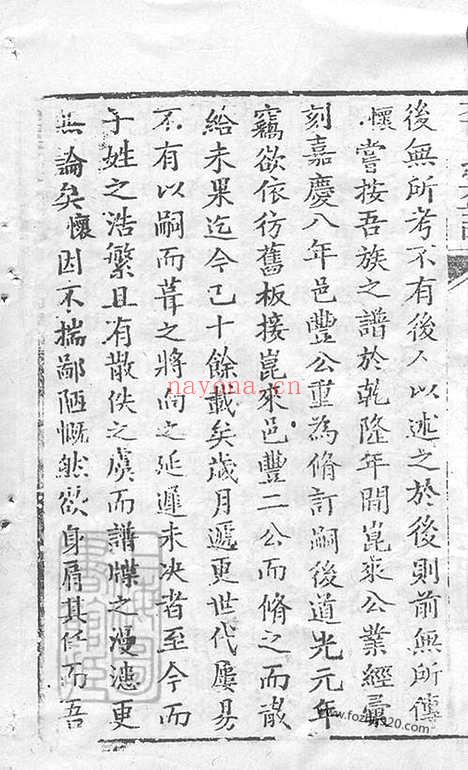 後無所考不有後人以述之於後則前無所傳
懷嘗按吾族之譜於乾隆年間崑來公業經尋
刻嘉慶八年邑豐公重為脩訂嗣後道光元年
竊欲依彷舊板接崑來邑豐二公而脩之而歲
給未果迄今已十餘載矣歲月遞更世代屢易
不有以嗣而葺之將向之延遲未决者至今而
子姓之浩繁且有散佚之虞而譜牒之漫漶更
無論矣懷因不揣鄙陋慨然欲身肩其任而吾
nayona.cn
www.fozhu920.com